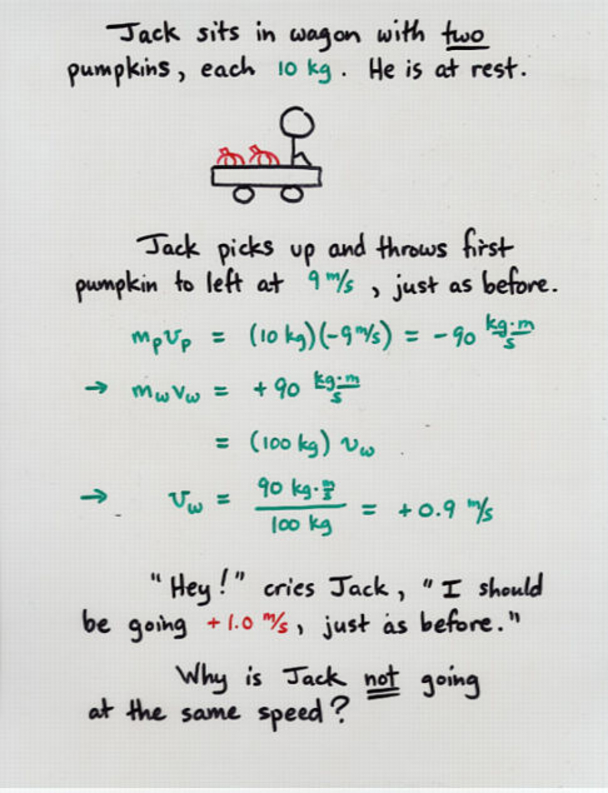 Jack sits in wagon with two
pumpkins, each 10 kg. He is at rest.
Jack picks up and throws first
pumpkin to left at 9 m/s, just as before.
mpvp = (10 kg)(-9 m/s) = -90 kg·m/s
→ mwvw = +90 kg·m/s
= (100 kg) vw
→ vw = 90 kg·m/s / 100 kg = +0.9 m/s
"Hey!" cries Jack, "I should
be going +1.0 m/s, just as before."
Why is Jack not going
at the same speed?